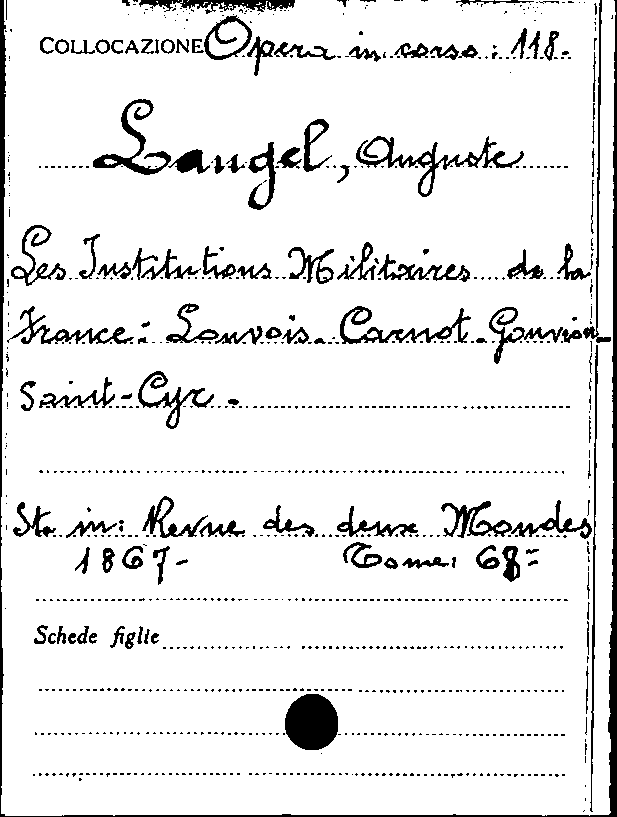 COLLOCAZIONE Opera in corso: 118.
Laugel, Auguste
Les Institutions Militaires de la
France: Louvois. Carnot. Gouvion-
Saint-Cyr.
Sta in: Revue des deux Mondes
1867- Tome: 68=
Schede figlie